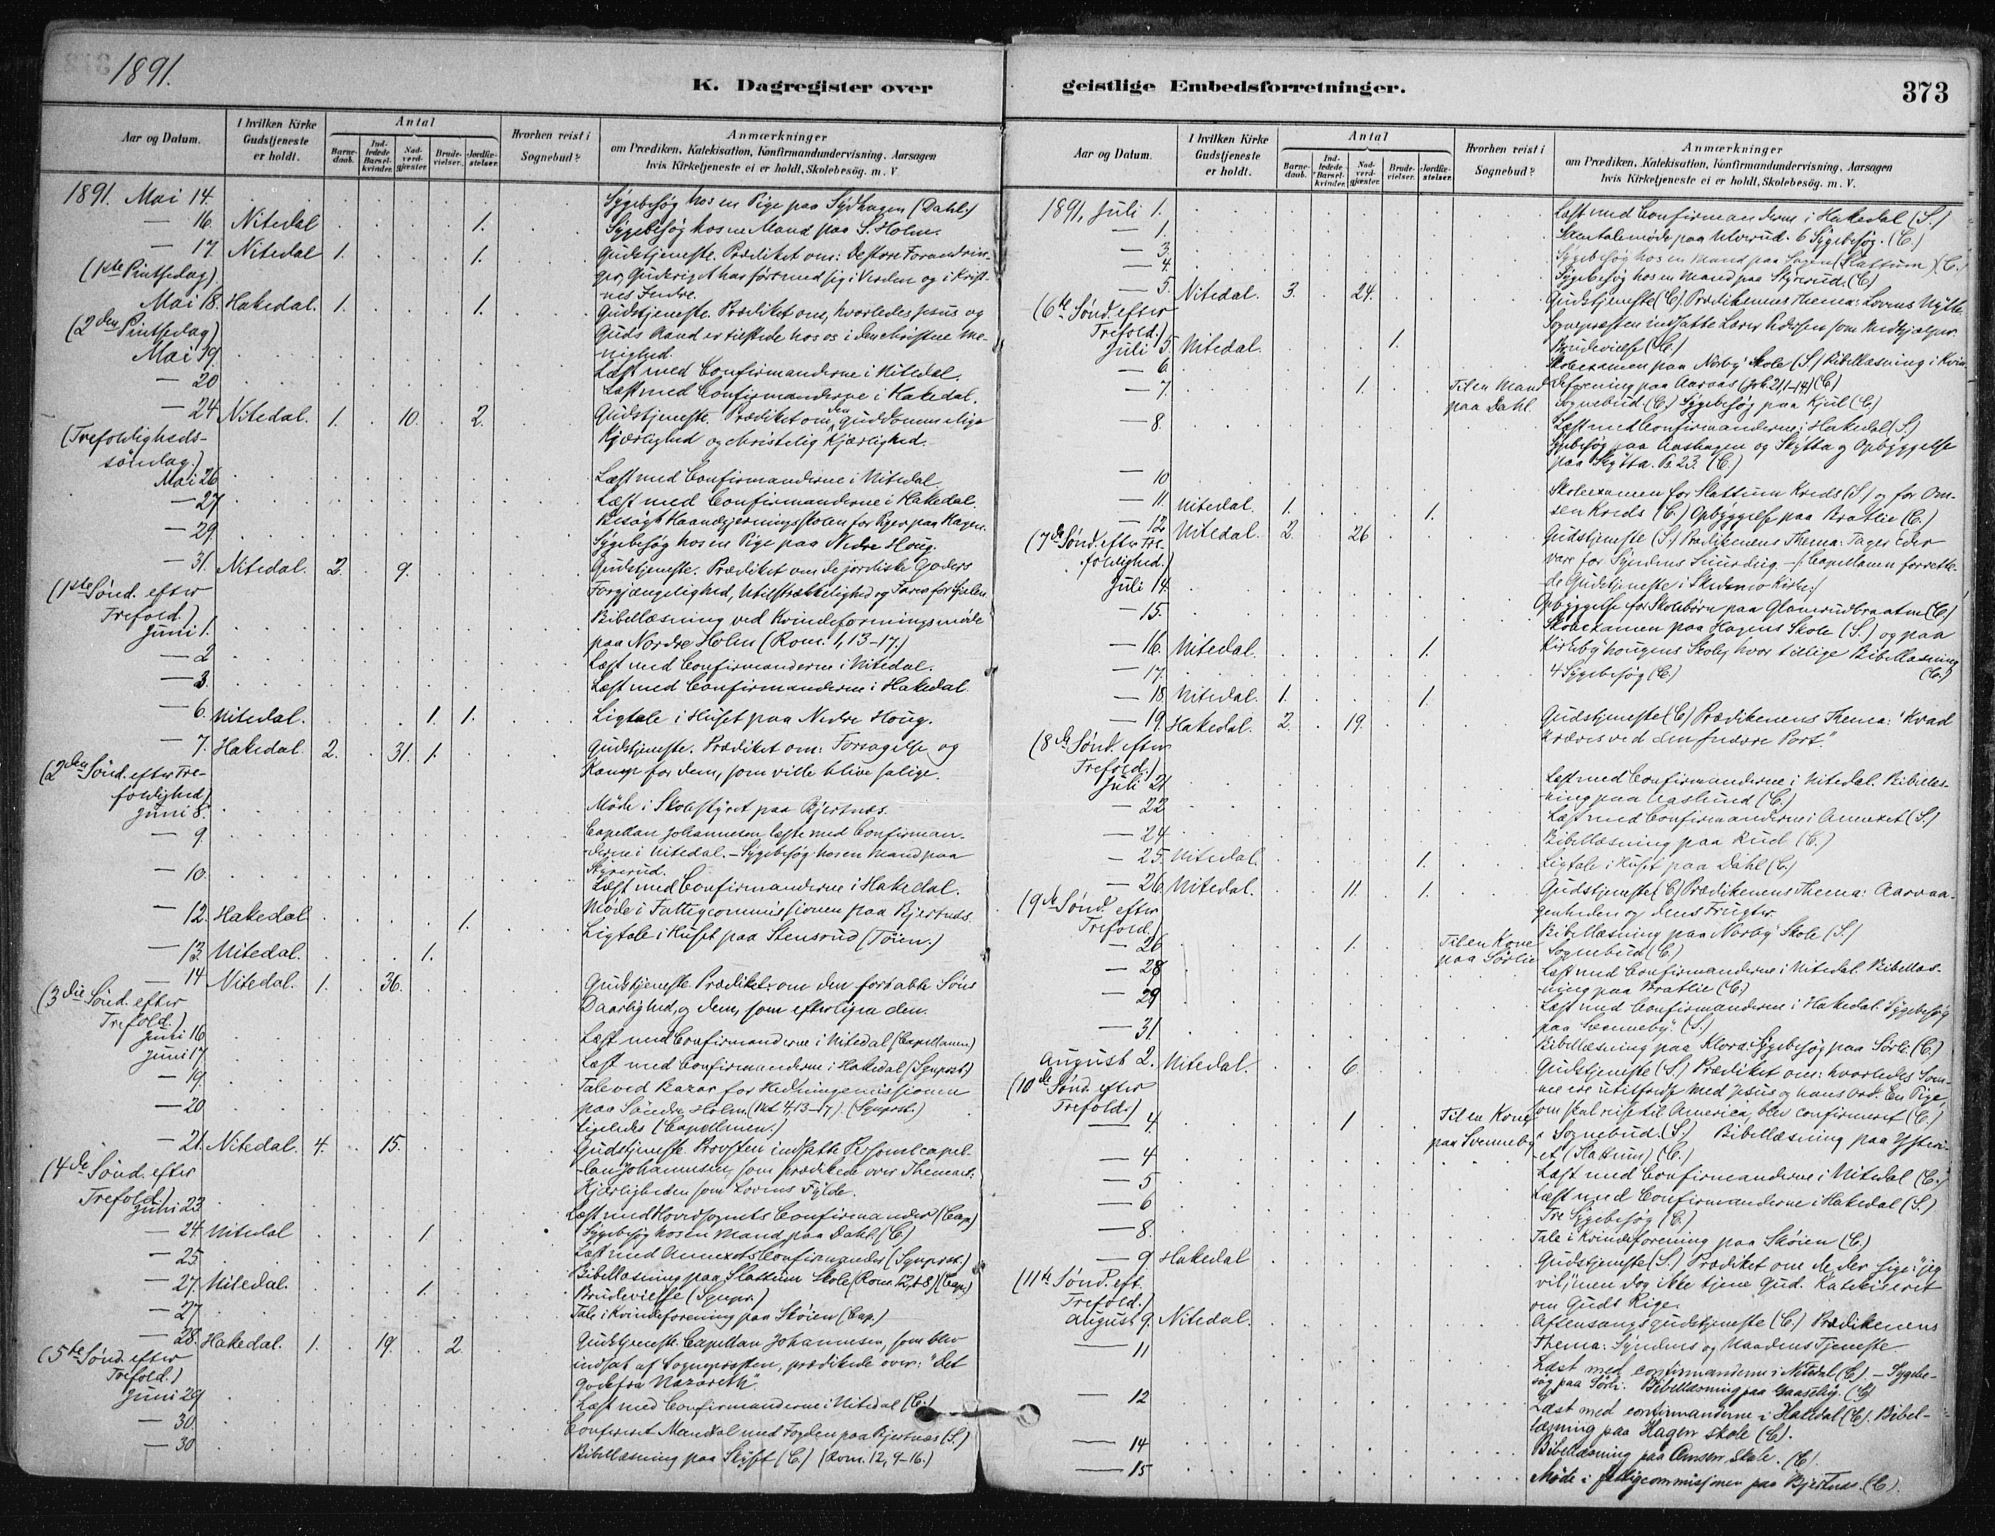 1891.
K. Dagregister over
Aar og Datum.
I hvilken Kirke Gudstjeneste er holdt.
Antal
Barnedaab.
Indledede Barselkvinder.
Nadverdgjester.
Brudevielser.
Jordfæstelser.
Hvorhen reist i Sognebud?
Anmærkninger
om Prædiken, Katekisation, Konfirmandundervisning, Aarsagen
hvis Kirketjeneste ei er holdt, Skolebesög. m. V.
1891. Mai 14. Sygebesøg hos en Pige paa Sydhagen (Dahl.)
— 16. Nitedal 1. Sygebesøg hos en Mand paa S. Holm.
— 17. Nitedal 1. 1. Gudstjeneste. Prædiket om: De store Forandrin-
(1ste Pintsedag) ger, Guds riget har ført med sig i Verden og i Krist-
nes Indre.
Mai 18. Hakedal. 1. 1. Gudstjeneste. Prædiket om, hvorledes Jesus og
(2den Pintsedag) Guds Aand er tilstede hos os i den christne Me-
nighed.
Mai 19. Læst med Confirmanderne i Nitedal.
— 20 Læst med Confirmanderne i Hakedal.
— 24 Nitedal. 1. 10. 2. Gudstjeneste. Prædiket om den guddommelige
(Trefoldigheds- Kjærlighed og christelig Kjærlighed.
søndag.)
Mai 26 Læst med Confirmanderne i Nitedal
— 27 Læst med Confirmanderne i Hakedal.
— 29. Besøgt Haandgjerningsskolen for Piger paa Hagen.
Sygebesøg hos en Pige paa Nedre Houg.
— 31. Nitedal. 2. 9. Gudstjeneste. Prædiket om de jordiske Goders
(1ste Sønd. efter Forgjængelighed, Utilstrækkelighed og Fare for Sjælen.
Trefold.)
Juni 1. Bibellæsning ved Kvindeforeningsmøde
paa Nordre Holm (Rom. 1, 13-17.)
— 2 Læst med Confirmanderne i Nitedal.
— 3. Læst med Confirmanderne i Hakedal.
— 6. Nitedal. 1. 1. Ligtale i Huset paa Nedre Houg.
— 7. Hakedal. 2. 31. 1. Gudstjeneste. Prædiket om: Forsagelse og
(2den Sønd. efter Tre- Kamp for dem, som ville blive salige.
foldighed)
Juni 8. Møde i Skolestyret paa Bjertnæs.
— 9. Capellan Johannesen læste med Confirman-
derne i Nitedal. — Sygebesøg hos en Mand paa
Styrerud.
— 10. Læst med Confirmanderne i Hakedal.
Møde i Fattigcommissionen paa Bjertnæs.
— 12. Hakedal 1. Ligtale i Huset paa Stensrud (Tøien.)
— 13. Nitedal. 1.
— 14 Nitedal. 1. 36. Gudstjeneste Prædiket om den fortabte Søns
(3die Sønd. efter Daarlighed, og dem, som efterligne den.
Trefold.)
Juni 16 Læst med Confirmanderne i Nitedal (Capellanen.)
Juni 17 Læst med Confirmanderne i Hakedal (Sgnprst.)
— 19. Tale ved Bazar for Hedningemissionen
paa Søndre Holm. (4, 13-17). (Sgnprst.)
— 20 Ligeledes (Capellanen.)
— 21. Nitedal. 4. 15. Gudstjeneste. Provsten indsatte Personelcapel-
(4de Sønd. efter lan Johannesen, som prædikede over Themaet:
Trefold.) Kjærligheden som Lovens Fylde.
Juni 23 Læst med Hovedsognets Confirmander (Cap)
— 24. Nitedal 1 Sygebesøg hos en Mand paa Dahl. (C.)
— 25. Læst med Annexets Confirmander (Sgnprst.)
Bibellæsning paa Slattum Skole (Rom. 12, 1-8) (Cap.)
— 27. Nitedal. 1. Brudevielse (Sgnpr.)
— 27 Tale i Kvindeforening paa Skøien (Cap.)
— 28. Hakedal. 1. 19. 2. Gudstjeneste. Capellan Johannesen, som blev
(5te Sønd. efter indsat af Sognepræsten, prædikede over: "Det
Trefold.) Gode fra Nazareth".
Juni 29 Læst med Confirmanderne i Nitedal (C.)
— 30. Confereret Mandal med Fogden paa Bjertnæs (S.)
— 30 Bibellæsning paa Skyset (C.) (Rom. 12, 9-16.)
geistlige Embedsforretninger.
373
Aar og Datum.
I hvilken Kirke Gudstjeneste er holdt.
Antal
Barnedaab.
Indledede Barselkvinder.
Nadverdgjester.
Brudevielser.
Jordfæstelser.
Hvorhen reist i Sognebud?
Anmærkninger
om Prædiken, Katekisation, Konfirmandundervisning, Aarsagen
hvis Kirketjeneste ei er holdt, Skolebesög. m. V.
1891, Juli 1. Læst med Confirmanderne i Hakedal (S.)
— 1. Skoletalemøde paa Ulverud. 6 Sygebesøg. (C.)
— 3 Sygebesøg hos en Mand paa Sagen (Slattum) (C.)
— 4. Sygebesøg hos en Mand paa Styrerud. (C)
— 5 Nitedal. 3. 24. Gudstjeneste (C). Prædikenens Thema: Lovens Nytte.
(6te Sønd. efter Sognepræsten indsatte Lærer Pedersen som Medhjælper.
Trefold.)
Juli 5. Nitedal. 1. Brudevielse (C.)
— 6 Skoleexamen paa Nørby Skole (S.) Bibellæsning i Kvin-
— 7. 1. Til en Mand deforening paa Aaraas (Joh 21, 1-14) (C.)
paa Dahl. Sognebud (C.) Sygebesøg paa Kjul (C.)
— 8. Læst med Confirmanderne i Hakedal (S.)
Sygebesøg paa Aashagen og Skytta og Opbyggelse
paa Skytta. Ps. 23. (C.)
— 10
— 11. Nitedal. 1. 1. Skoleexamen for Slattum Kreds (S.) og for Om-
sen Kreds (C.) Opbyggelse paa Bratlie (C.)
— 12. Nitedal. 2. 26 Gudstjeneste (S.) Prædikenens Thema: Tager Eder
(7de Sønd. efter Tre- vare for Syndens Smerdeig — (Capellanen forrette-
foldighed.) de Gudstjeneste i Skedsmo Kirke.)
Juli 14. Opbyggelse for Skolebørn paa Glamerudbraaten (C.)
— 15. Skoleexamen paa Hagens Skole (S.) og paa
— 16. Nitedal. 1. Kirkebyhougens Skole, hvor tillige Bibellæsning
(C.)
— 17. 4 Sygebesøg (C.)
— 18. Nitedal. 1. 1.
— 19. Hakedal. 2. 19. Gudstjeneste (C.) Prædikenens Thema: "Hvad
(8de Sønd. efter kræves ved den snævre Port."
Trefold.)
Juli 21 Læst med Confirmanderne i Nitedal. Bibellæs-
ning paa Aaslund (C.)
— 22 Læst med Confirmanderne i Annexet (S.)
— 24 Bibellæsning paa Rud (C.)
— 25. Nitedal. 1. Ligtale i Huset paa Dahl (C.)
— 26 Nitedal. 11. 1. Gudstjeneste (C) Prædikenens Thema: Aarvaa-
(9de Sønd. efter genheden og dens Frugter.
Trefold.) Bibellæsning paa Nørby Skole (S.)
— 26 1. Til en Kone Sognebud (C.)
paa Sørlie
— 28 Læst med Confirmanderne i Nitedal. Bibellæs-
ning paa Bratlie (C.)
— 29 Læst med Confirmanderne i Hakedal. Sygebesøg
paa Svenneby. (S.)
— 31 Bibellæsning paa Klora. Sygebesøg paa Sørli. (C.)
August 2. Nitedal. 6. Gudstjeneste (S.) Prædiket om: hvorledes Som-
(10de Sønd. efter me ere utilfredse med Jesus og hans Ord. En Pige,
Trefold.) som skal reise til America, blev confirmeret (C.)
— 4. 1 Til en Kone Sognebud. (S.) Bibellæsning paa
paa Svenneby (Slattum) (C.)
— 4 Læst med Confirmanderne i Nitedal (C.)
— 5 Læst med Confirmanderne i Hakedal (S.)
— 6 Tre Sygebesøg (C.)
— 8. Tale i Kvindeforening paa Skøien (C.)
— 9 Hakedal Gudstjeneste (S.) Prædiket om de, der sige: "jeg
(11te Sønd. eft. vil", men dog ikke tjene Gud. Katekiseret
Trefold.) om Guds Rige.
August 9. Nitedal. Aftensangsgudstjeneste (C.) Prædikenens
Thema: Syndens og Naadens Tjeneste
— 11 Læst med confirmanderne i Nitedal (C). — Sygebe-
søg paa Sørli. Bibellæsning paa Gaaslig. (C).
— 12 Læst med confirmanderne i Hakedal (C). Bibel-
læsning paa Hagen skole (C).
— 14 Bibellæsning paa Omsen Skole. (C).
— 15 Møde i fattigcommissjonen paa Bjertnæs. (C).